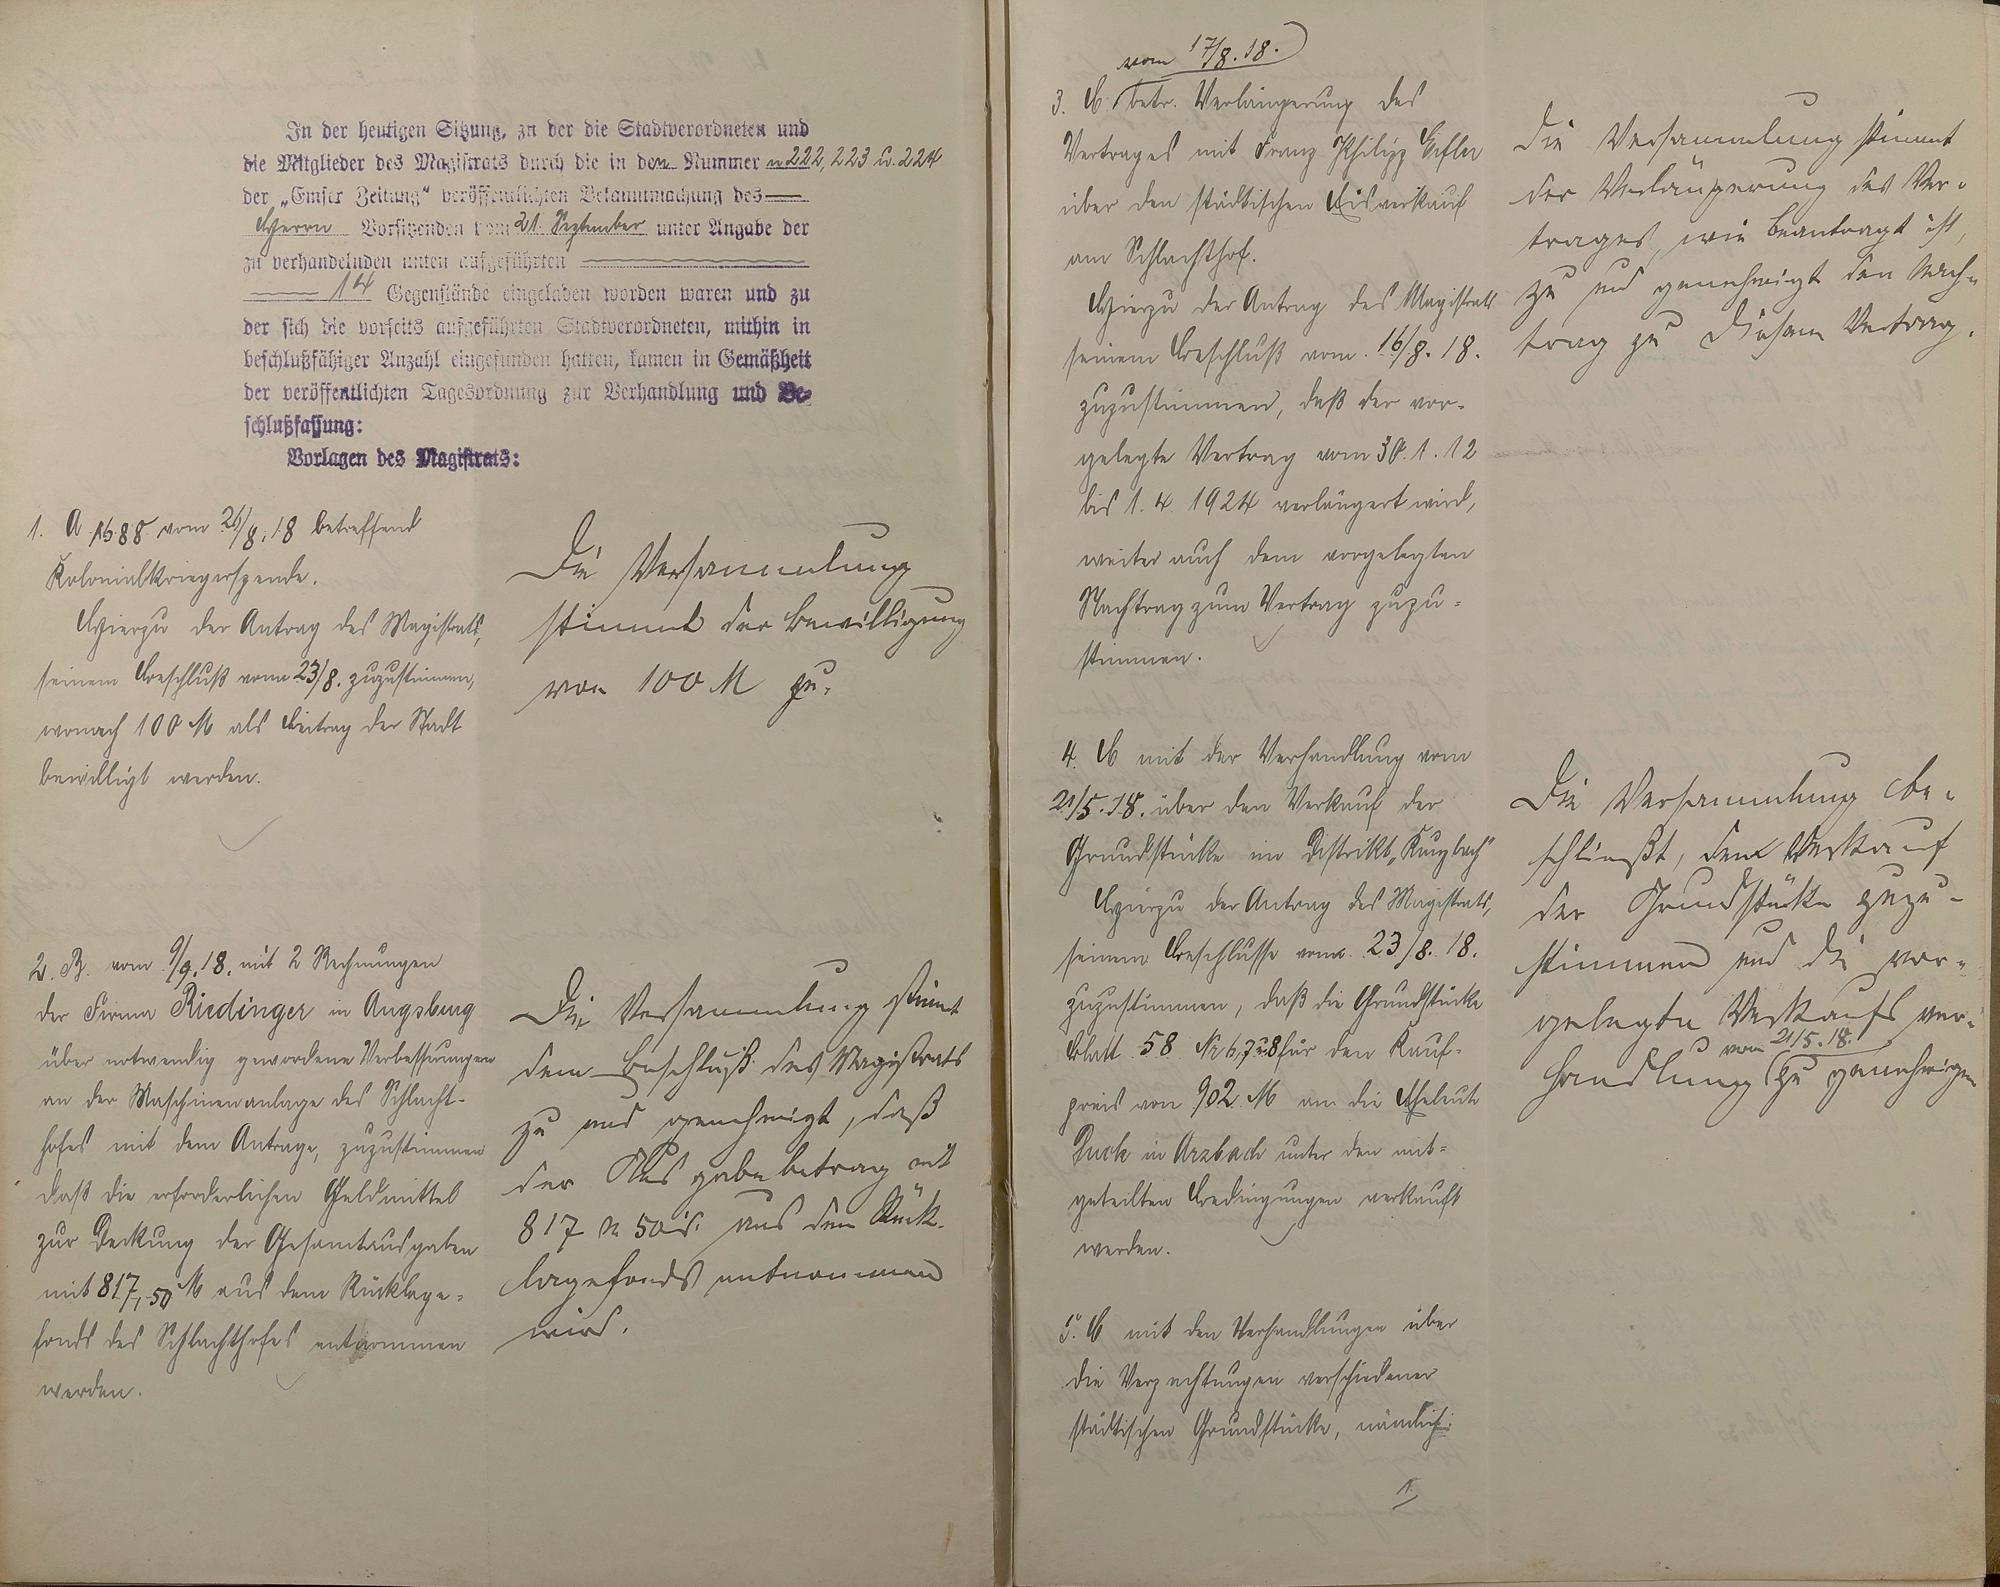 In der heutigen Sitzung, zu der die Stadtverordneten und
die Mitglieder des Magistrats durch die in den Nummer n 222, 223 u. 224
der „Emser Zeitung“ veröffentlichten Bekanntmachung des
Herrn Vorsitzenden vom 21. September unter Angabe der
zu verhandelnden unten aufgeführten
14 Gegenstände eingeladen worden waren und zu
der sich die vorseits aufgeführten Stadtverordneten, mithin in
beschlußfähiger Anzahl eingefunden hatten, kamen in Gemäßheit
der veröffentlichten Tagesordnung zur Verhandlung und Be-
schlußfassung:
Vorlagen des Magistrats:
1. A vom 26/8. 18 betreffend
Kolonialkriegerspende.
Hierzu der Antrag des Magistrats,
seinem Beschluß vom 23/8. zuzustimmen,
wonach 100 M als Beitrag der Stadt
bewilligt werden.
Die Versammlung
stimmt der Bewilligung
von 100 M zu.
2. B. vom 9/9. 18. mit 2 Rechnungen
der Firma Riedinger in Augsburg
über notwendig gewordene Verbesserungen
an der Maschinenanlage des Schlacht-
hofes mit dem Antrage, zuzustimmen
daß die erforderlichen Geldmittel
zur Deckung der Gesamtausgaben
mit 817,50 M aus dem Rücklage-
fonds des Schlachthofes entnommen
werden.
Die Versammlung stimmt
dem Beschluß des Magistrats
zu und genehmigt, daß
der Ausgabebetrag mit
817 M 50 aus dem Rück-
lagefonds entnommen
wird.
vom 17/8. 18.
3. B. betr. Verlängerung des
Vertrages mit Franz Philipp
über den städtischen Eisverkauf
am Schlachthof.
Hierzu der Antrag des Magistrats
seinem Beschluß vom 16/8. 18.
zuzustimmen, daß der vor-
gelegte Vertrag vom 30. 1. 12
bis 1. 4. 1924 verlängert wird,
weiter auch dem vorgelegten
Nachtrag zum Vertrag zuzu-
stimmen.
Die Versammlung stimmt
der Verlängerung des Ver-
trages, wie beantragt ist,
zu und genehmigt den Nach-
trag zu diesem Vertrag.
4. B mit der Verhandlung vom
21/5. 18. über den Verkauf der
Grundstücke im Distrikt „Kunzbach“
Hierzu der Antrag des Magistrats,
seinem Beschlusse vom 23/8. 18.
zuzustimmen, daß die Grundstücke
Blatt 58 Nr 6, 7 u. 8 für den Kauf-
preis von 902 M an die Eheleute
in Arzbach unter den mit-
geteilten Bedingungen verkauft
werden.
Die Versammlung be-
schließt, dem Verkauf
der Grundstücke zuzu-
stimmen und die vor-
gelegte Verkaufs ver-
vom 21/5. 18.
handlung zu genehmigen
5. B mit den Verhandlungen über
die Verpachtungen verschiedener
städtischen Grundstücke, nämlich:
1.